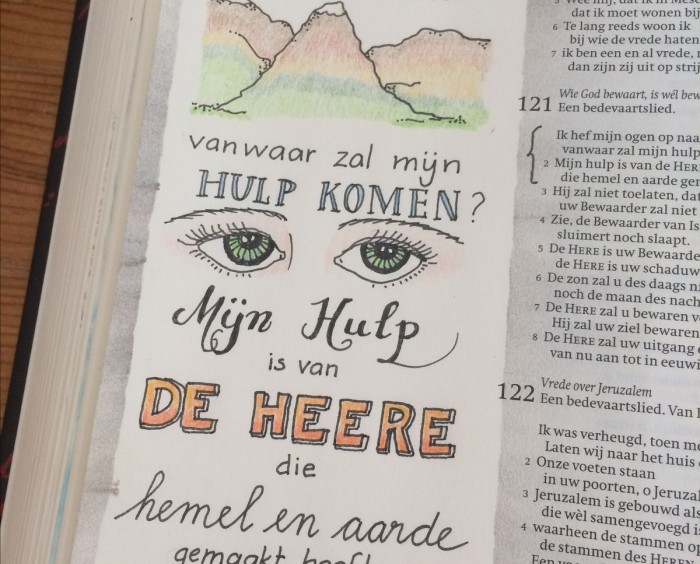 vanwaar zal mijn
HULP KOMEN?
Mijn Hulp
is van
DE HEERE
die
hemel en aarde
gemaakt heeft
5 Wee mij, dat ik in
dat ik moet wonen bij
6 Te lang reeds woon ik
bij wie de vrede haten
7 ik ben een en al vrede,
dan zijn zij uit op
Wie God bewaart, is wél
121 Een bedevaartslied.
Ik hef mijn ogen op
vanwaar zal mijn hulp
2 Mijn hulp is van de HERE
die hemel en aarde
3 Hij zal niet toelaten,
uw Bewaarder zal niet
4 Zie, de Bewaarder van
sluimert noch slaapt.
5 De HERE is uw Bewaarder
de HERE is uw schaduw
6 De zon zal u des daags
noch de maan des
7 De HERE zal u bewaren
Hij zal uw ziel bewaren
8 De HERE zal uw uitgang
van nu aan tot in
Vrede over Jeruzalem
122 Een bedevaartslied. Van
Ik was verheugd, toen
Laten wij naar het huis
2 Onze voeten staan
in uw poorten, o
3 Jeruzalem is gebouwd als
die wèl samengevoegd
4 waarheen de stammen
de stammen des HEREN